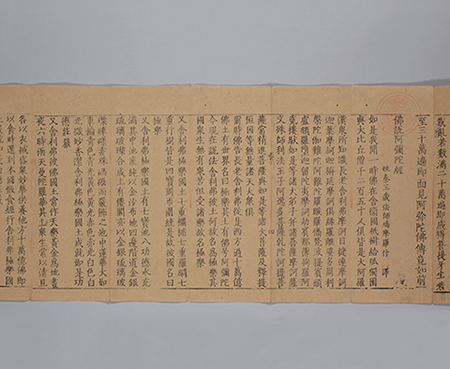 亂若數滿二十萬遍即感得菩提芽生若
至三十萬遍即面見阿弥陀佛竟如前
佛說阿彌陀經
姚秦三藏法師鳩摩羅什 譯
如是我聞一時佛在舍衛國祇樹給孤獨園
與大比丘僧千二百五十人俱皆是大阿羅
漢衆所知識長老舍利弗摩訶目犍連摩訶
迦葉摩訶迦栴延摩訶俱絺羅離婆多周利
槃陀伽難陀阿難陀羅睺羅憍梵波提賓頭
盧頗羅墮迦留陀夷摩訶劫賓那薄拘羅阿
㝹樓馱如是等諸大弟子并諸菩薩摩訶薩
文殊師利法王子阿逸多菩薩乾陀訶提菩
四
薩常精進菩薩與如是等諸大菩薩及釋提
桓因等無量諸天大衆俱
爾時佛告長老舍利弗從是西方過十萬億
佛土有世界名曰極樂其土有佛號阿彌陀
今現在說法舍利弗彼土何故名爲極樂其
國衆生無有衆苦但受諸樂故名極樂
又舍利弗極樂國土七重欄楯七重羅網七
重行樹皆是四寶周帀圍繞是故彼國名曰
極樂
又舍利弗極樂國土有七寶池八功德水充
滿其中池底純以金沙布地四邊階道金銀
琉璃玻瓈合成上有樓閣亦以金銀琉璃玻
瓈硨磲赤珠瑪瑙而嚴飾之池中蓮華大如
車輪青色青光黃色黃光赤色赤光白色白
光微妙香潔舍利弗極樂國土成就如是功
德莊嚴
又舍利弗彼佛國土常作天樂黃金爲地晝
夜六時雨天曼陀羅華其土衆生常以清旦
各以衣裓盛衆妙華供養他方十萬億佛即
以食時還到本國飯食經行舍利弗極樂國